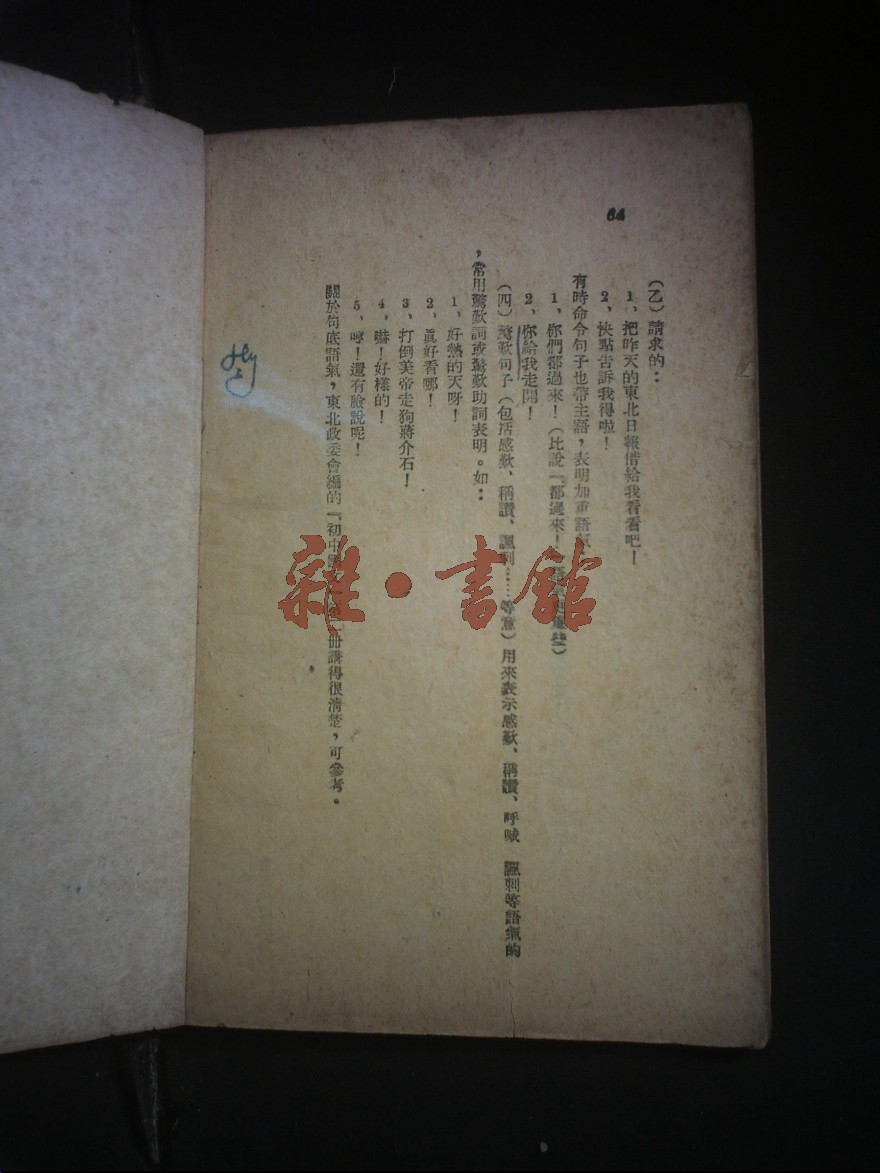 64
（乙）請求的：
1、把昨天的東北日報借給我看看吧！
2、快點告訴我得啦！
有時命令句子也帶主語，表明加重語氣
1、你們都過來！（比說『都過來！
2、你給我走開！
（四）驚歎句子（包括感歎、稱讚、諷刺……等意）用來表示感歎、稱讚、呼喊　諷刺等語氣的
，常用驚歎詞或驚歎助詞表明。如：
1、好熱的天呀！
2、眞好看哪！
3、打倒美帝走狗蔣介石！
4、嚇！好樣的！
5、哼！還有臉說呢！
關於句底語氣，東北政委會編的『初中 冊講得很清楚，可參考。
雜·書館